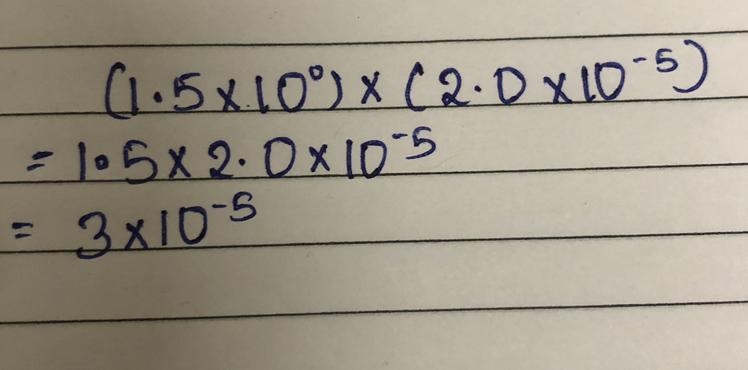 (1.5×10⁰)×(2.0×10⁻⁵)
=1.5×2.0×10⁻⁵
= 3×10⁻⁵